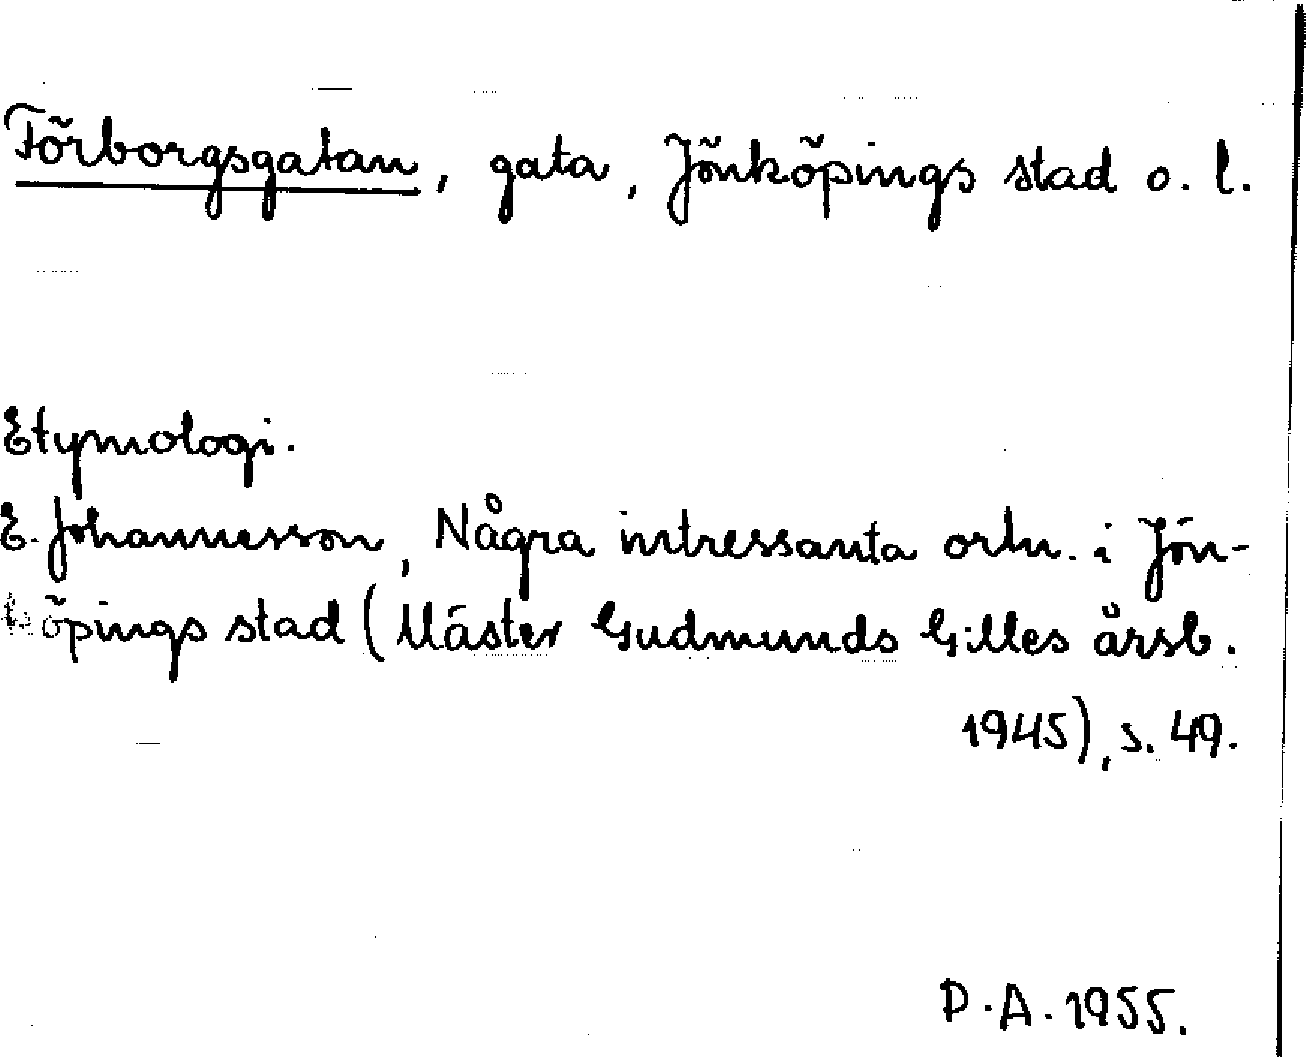 Förborgsgatan, gata, Jönköpings stad o. l.
Etymologi.
E. Johannesson, Några intressanta ortn. i Jön-
köpings stad (Mäster Gudmunds Gilles årsb.
1945), s. 49.
D.A. 1955.